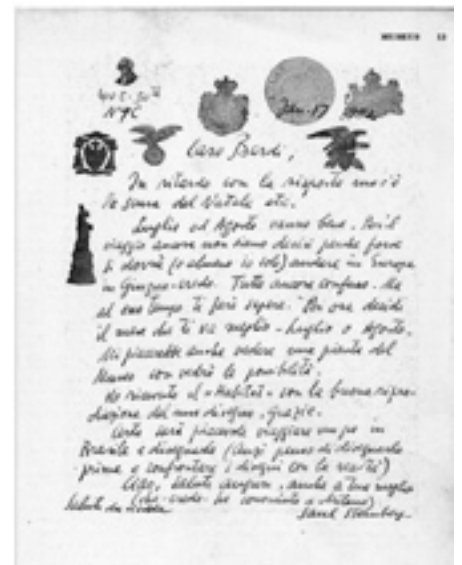 12
NYC
Jan. 17 1952
Caro Bardi,
In ritardo con la risposta ma c'è
la scusa del Natale etc.
Luglio ed Agosto vanno bene. Per il
viaggio ancora non siamo decisi perché forse
si dovrà (o almeno io solo) andare in Europa
in Giugno credo. Tutto ancora confuso. Ma
al suo tempo ti farò sapere. Poi ora decidi
il mese che ti va meglio - Luglio o Agosto.
Mi piacerebbe anche vedere una pianta del
Museo con vedrò le possibilità.
Ho ricevuto il "Habitat" con la buona ripro-
duzione del mio disegno. Grazie.
Certo sarà piacevole viaggiare un po in
Brasile e disegnando (anzi penso di disegnarlo
prima e confrontare i disegni con la realtà)
Ciao, saluti auguri, anche a tua moglie
(che credo ho conosciuto a Milano)
Saluti da
Saul Steinberg